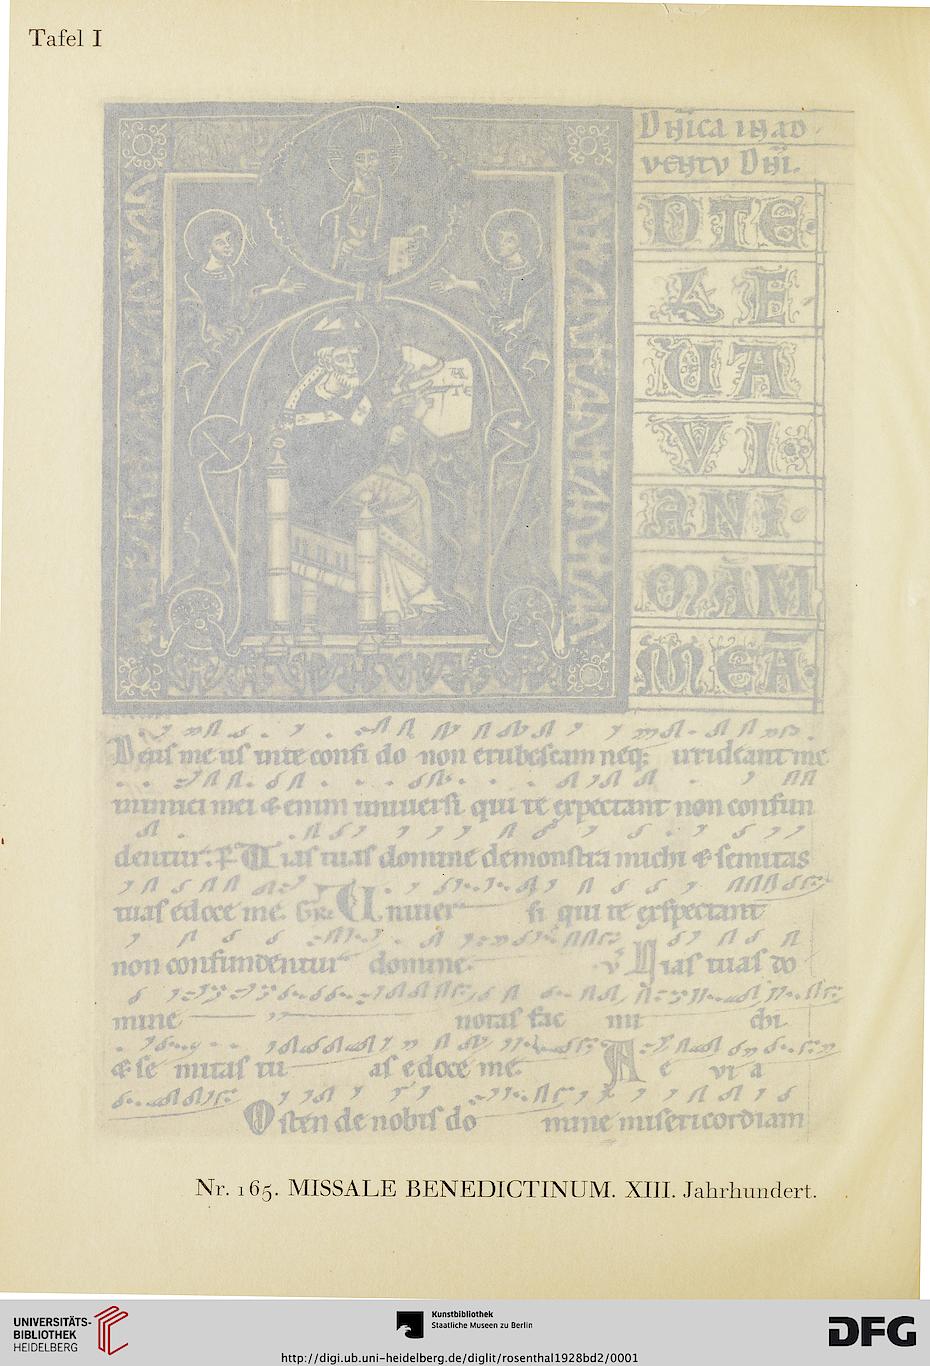 Tafel I
Dñica in ad
ventv Dñi.
D TE
LE
UA
VI
ANI
MAM
MEĀ
A
TE
Deus me us in te confi do non erubescam neq; irrideant me
inimici mei & enim universi qui te expectant non confun
dentur. P. Vias tuas domine demonstra michi & semitas
tuas edoce me. GR. Univer si qui te exspectant
non confundentur domine. V Vias tuas do
mine notas fac mi chi
& se mitas tu as edoce me. A e vi a
Osten de nobis do mine misericordiam
Nr. 165. MISSALE BENEDICTINUM. XIII. Jahrhundert.
UNIVERSITÄTS-
BIBLIOTHEK
HEIDELBERG
Kunstbibliothek
Staatliche Museen zu Berlin
DFG
http://digi.ub.uni-heidelberg.de/diglit/rosenthal1928bd2/0001